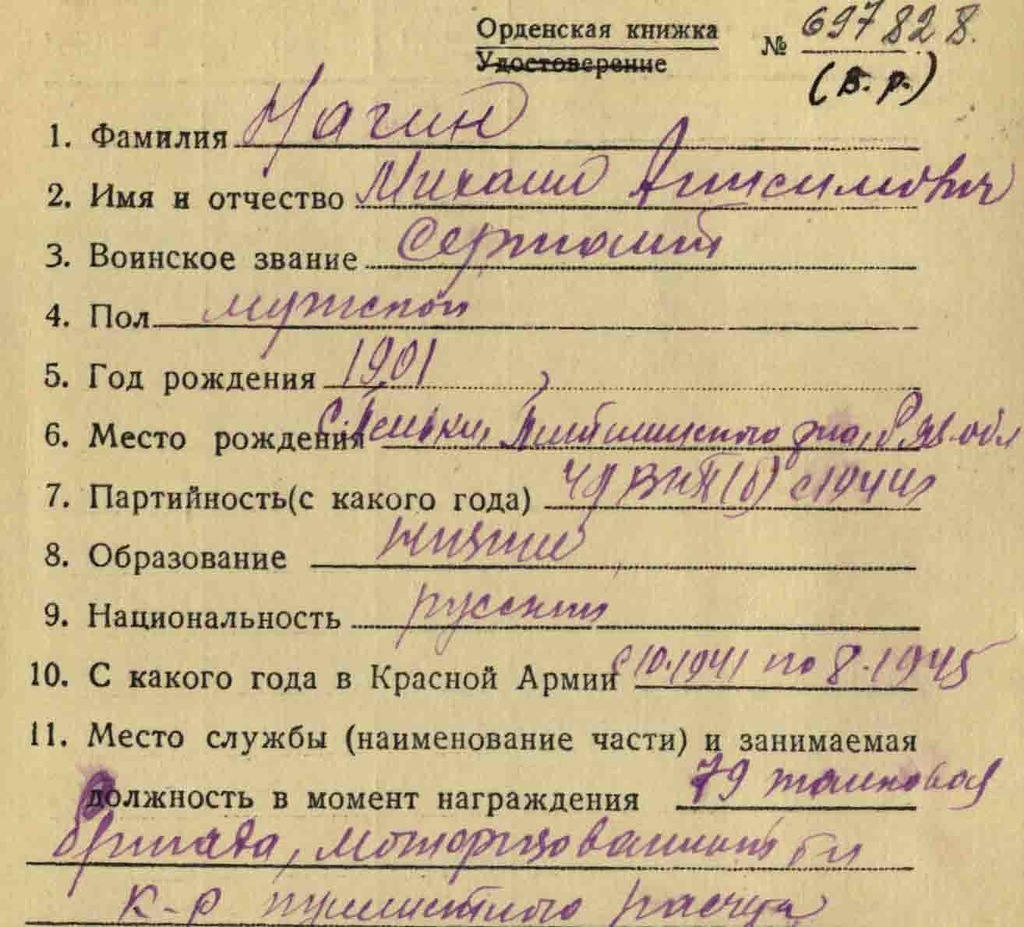 Орденская книжка № 697828.
Удостоверение (в. р.)
1. Фамилия Нагин
2. Имя и отчество Михаил Анисимович
3. Воинское звание Сержант
4. Пол мужской
5. Год рождения 1901
6. Место рождения обл
7. Партийность(с какого года) чл ВКП(б) с 1944г
8. Образование низшее
9. Национальность русский
10. С какого года в Красной Армии с 10.1941 по 8.1945
11. Место службы (наименование части) и занимаемая
должность в момент награждения 79 танковая
бригада, моторизованный
к-р пулеметного расчета